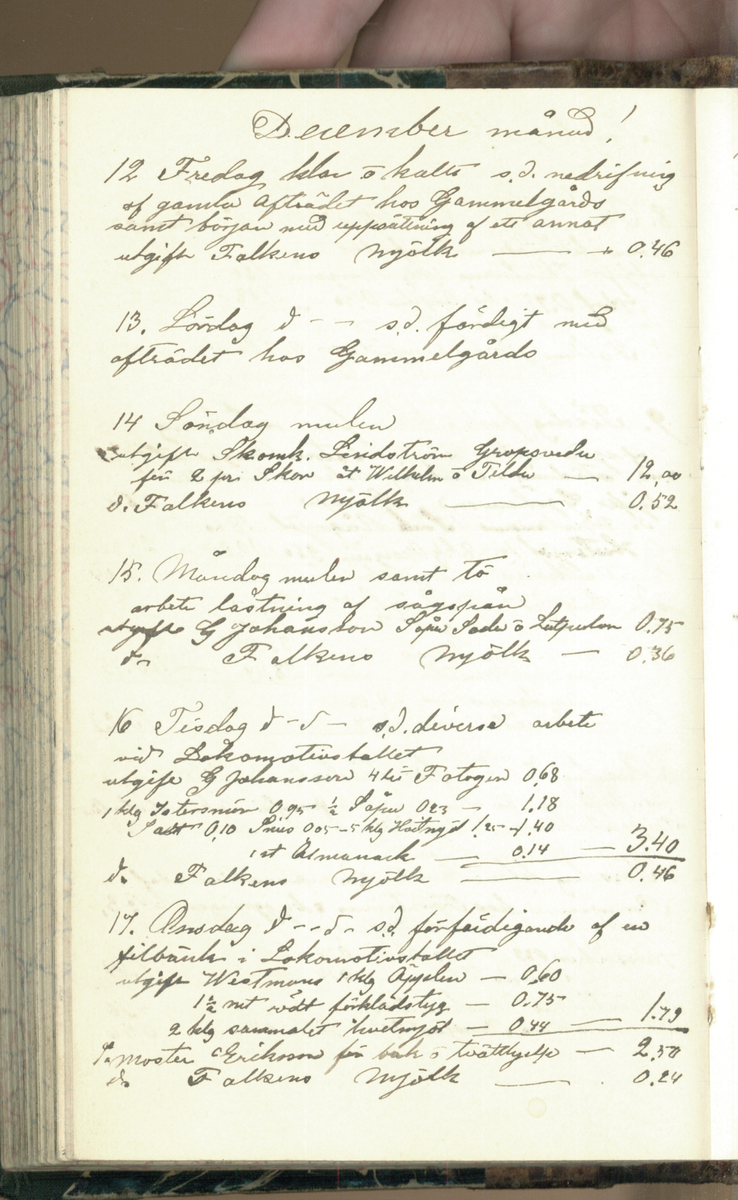 December månad!
12 Fredag klar o kallt s.d. nedrifning
af gamla afträdet hos Gammelgårds
samt början med uppsättning af ett annat
utgift Falkens Mjölk — 0.46
13. Lördag d - - s.d. färdigt med
afträdet hos Gammelgårds
14 Söndag mulen
utgift Skomk. Lindström
för 2 par Skor åt Wilhelm o Tilda — 12,00
d. Falkens Mjölk — 0.52
15. Måndag mulen samt tö
arbete lastning af sågspån
utgift G Johansson Såpa Soda o 0.75
do Falkens Mjölk — 0.36
16 Tisdag d - d - s.d. diverse arbete
vid Lokomotivstallet
utgift G Johansson 4 lit Fotogen 0,68
1 klg 0,95 ½ Såpa 0 23 — 1.18
Salt 0,10 Snus 0 05 - 5 klg Hvetmjöl 1.25 — 1.40
1 st Almanack — 0.14 — 3.40
do Falkens Mjölk — 0.46
17. Onsdag d - - d - s.d. förfärdigande af en
filbänk i Lokomotivstallet
utgift Westmans 1 klg Äpplen — 0,60
1½ mt rödt förklädstyg — 0.75
2 klg sammalet hvetmjöl — 0.44 — 1.79
Moster Eriksson för bak o tvätthjelp — 2,50
do Falkens Mjölk — 0.24